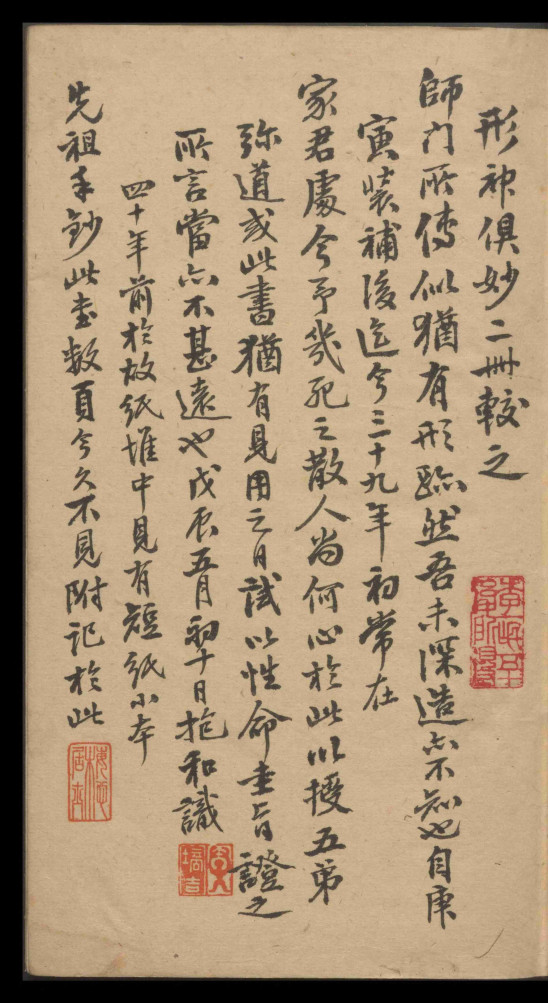 形神俱妙二冊較之
師門所傳似猶有形跡然吾未深造亦不知也自庚
寅裝補後迄今三十九年初常在
家君處今予幾死之散人尚何心於此以授五弟
弥道或此書猶有見用之日試以性命圭旨證之
所言當亦不甚遠也戊辰五月初十日抱和識
四十年前於故紙堆中見有短紙小本
先祖手鈔此書數頁今久不見附記於此